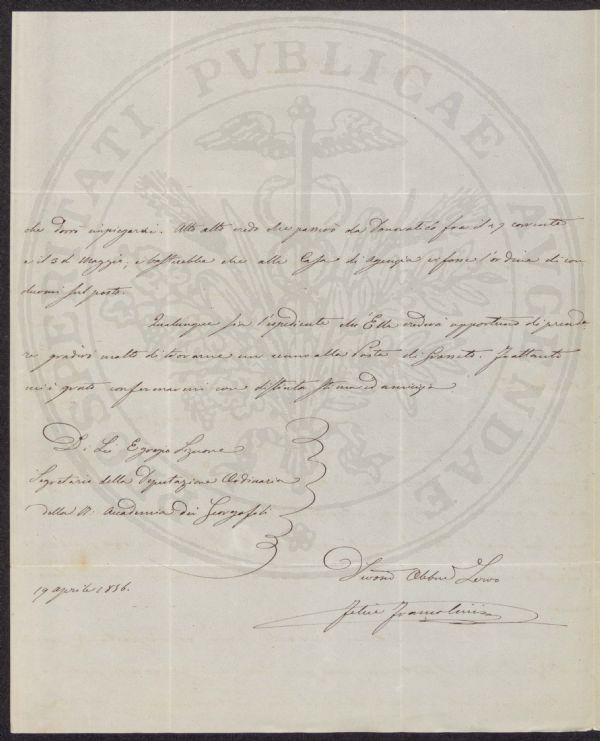 PROSPERITATI PVBLICAE AVGENDAE
che dovrò impiegarvi. Alto alto credo che passerò da Donoratico fra il 29 corrente
e il 3 di Maggio, e basterebbe che alla Casa di Agenzia vi fosse l'ordine di con
durmi sul posto.
Qualunque sia l'espediente che Ella crederà opportuno di prende
re gradirò molto di trovarne un cenno alla Posta di Grosseto. Frattanto
mi è grato confermarmi con distinta stima ed amicizia
Di Lei Egregio Signore
Segretario della Deputazione Ordinaria
della R. Accademia dei Georgofili
19 aprile 1856.
Devmo Obbmo Servo
Felice Francolini